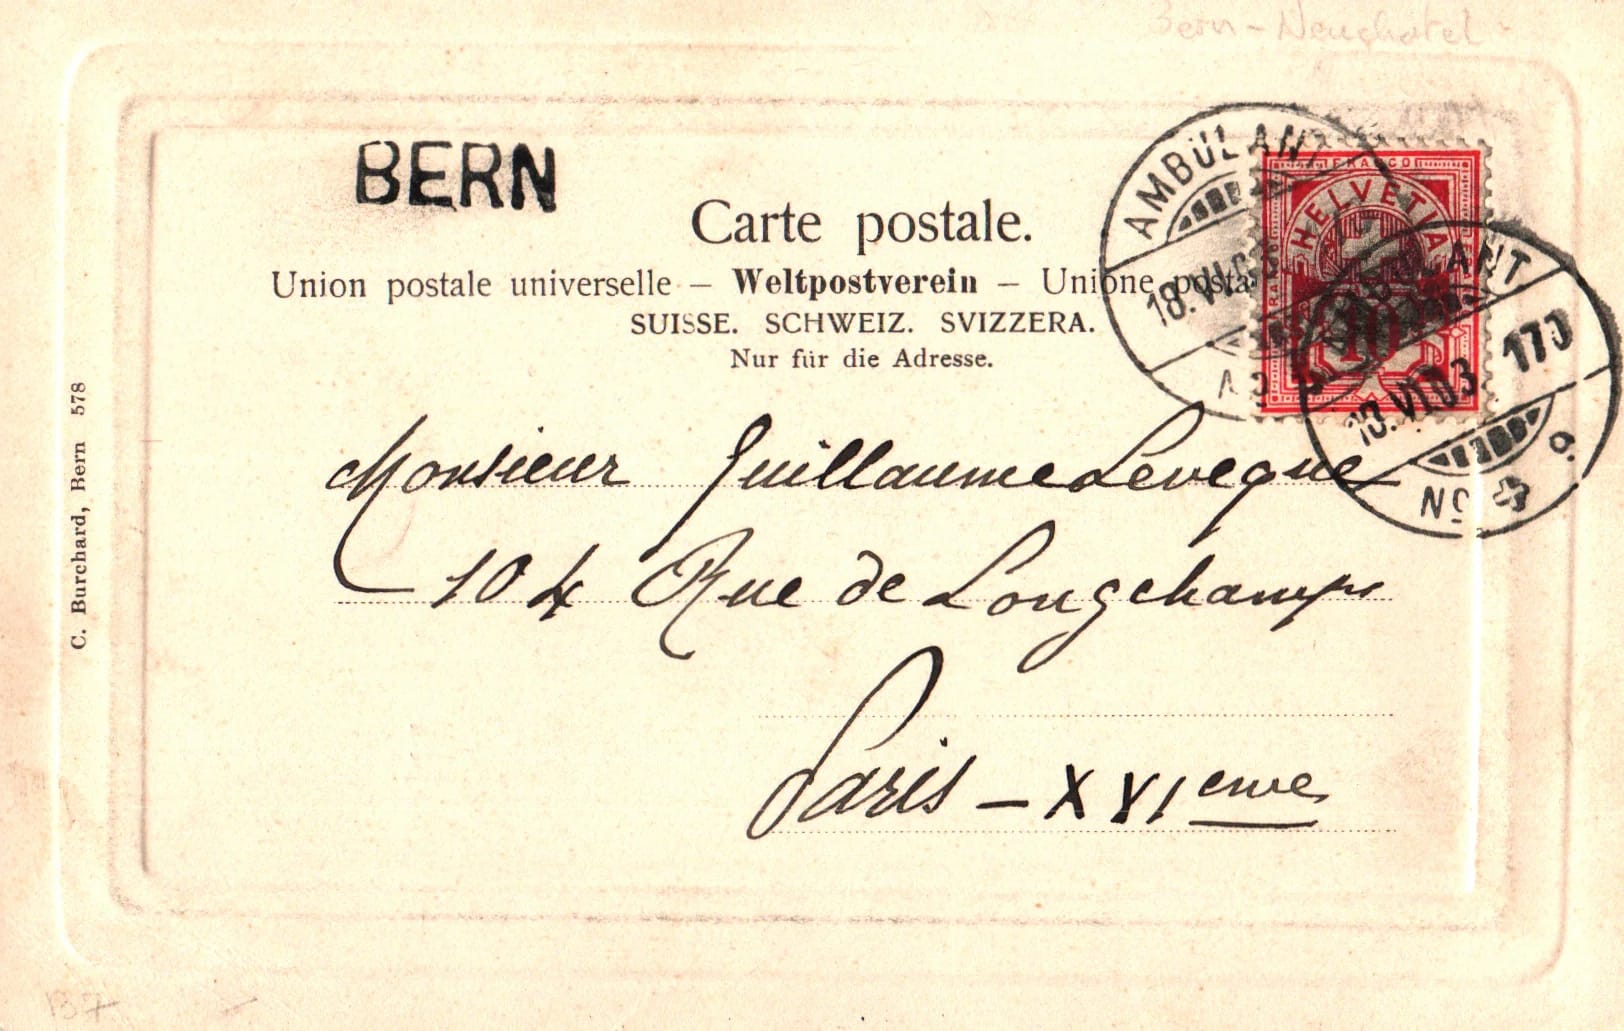 Bern - Neuchatel
BERN
Carte postale.
Union postale universelle – Weltpostverein – Unione posta
SUISSE. SCHWEIZ. SVIZZERA.
Nur für die Adresse.
AMBÜLANT
18. VI. 0
FRANCO
HELVETIA
10
LANT
18. VI 03 170
No
Monsieur Guillaume Leveque
104 Rue de Longchamps
Paris – XVIeme
C. Burchard, Bern 578
137